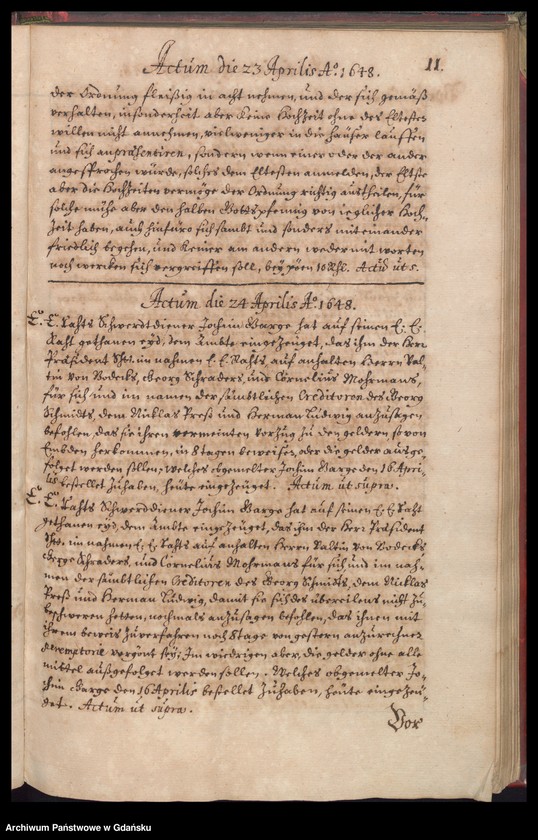 Actum die 23 Aprilis Ao. 1648.
11.
der Ordnung fleißig in acht nehmen, und der sich gemäß
verhalten, insonderheit aber keine Hochzeit ohne des Eltesten
willen nicht annehmen, vielweniger in die häuser lauffen
und sich anpräsentiren, sondern wenn einer oder der ander
angesprochen würde, solches dem Eltesten anmelden, der Elteste
aber die Hochzeiten vermöge der Ordnung richtig austheilen, für
solche mühe aber den halben Gottspfennig von ieglicher Hoch-
zeit haben, auch hinfüro sich sambt und sonders mit einander
friedlich begehen, und keiner am andern weder mit worten
noch wercken sich vergreiffen soll, bey pöen 10 Rthl. Actu ut s.
Actum die 24 Aprilis Ao. 1648.
E. E. Rahts Schwerdtdiener Jochim Barge hat auf seinen E. E.
Raht gethanen eyd, dem Ambte eingezeuget, das ihm der Herr
Präsident im nahmen E. E. Rahts, auf anhalten Herrn Val-
tin von Bodecks, Georg Schraders, und Cornelius Mohrmans,
für sich und im namen der sämbtlichen Creditoren des Georg
Schmidts, dem Nicklas Preß und Herman Ludwig anzusagen
befohlen, das sie ihren vermeinten Vorzug zu den geldern so von
Embden herkommen, in 8 tagen beweisen, oder die gelder ausge-
folget werden sollen, Welches obgemelter Jochim Barge den 16 Apri-
lis bestellet zuhaben, heute eingezeuget. Actum ut supra.
E. E. Rahts Schwerdtdiener Jochim Barge hat auf seinen E. E. Raht
gethanen eyd, dem Ambte eingezeuget, das ihm der Herr Präsident
im nahmen E. E. Rahts auf anhalten Herren Valtin von Bodecks
George Schraders, und Cornelius Mohrmans für sich und im nah-
men der sämbtlichen Creditoren des Georg Schmidts, dem Nicklas
Preß und Herman Ludwig, damit sie sich des übereilens nicht zu
beschweren hetten, nochmals anzusagen befohlen, das ihnen mit
ihrem beweis zu verfahren noch 8 tage von gestern anzurechnen
peremptorie vergönt sey; Im wiedrigen aber, die gelder ohne alle
mittel außgefolget werden sollen. Welches obgemelter Jo-
chim Barge den 16 Aprilis bestellet zuhaben, heute eingezeu-
get. Actum ut supra.
Vor
Archiwum Państwowe w Gdańsku